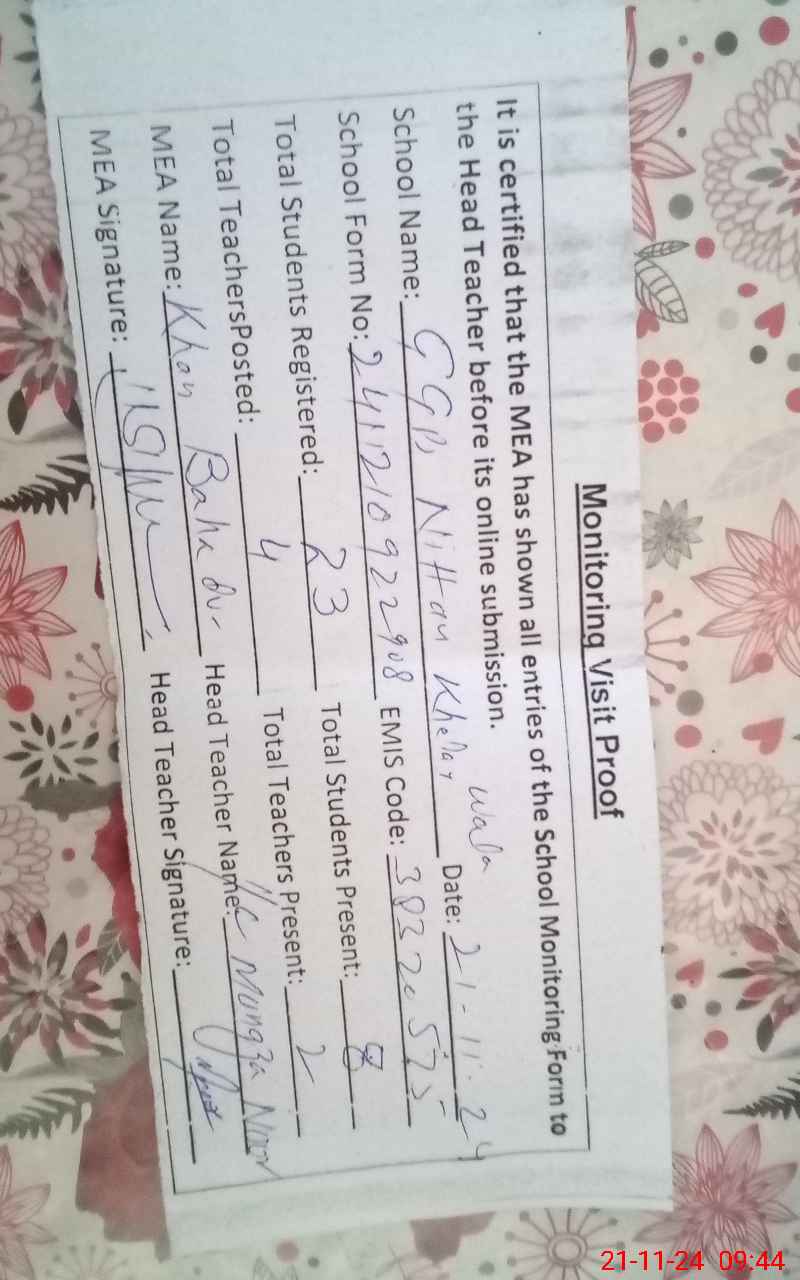 Monitoring Visit Proof
It is certified that the MEA has shown all entries of the School Monitoring Form to
the Head Teacher before its online submission.
School Name: GGPS Nittan Khelay wala Date: 21-11-24
School Form No: 241121092908 EMIS Code: 38320525
Total Students Registered: 23 Total Students Present: 8
Total TeachersPosted: 4 Total Teachers Present: 2
MEA Name: Khan Bahadur Head Teacher Name: Munaza Noor
MEA Signature: Head Teacher Signature:
21-11-24 09:44